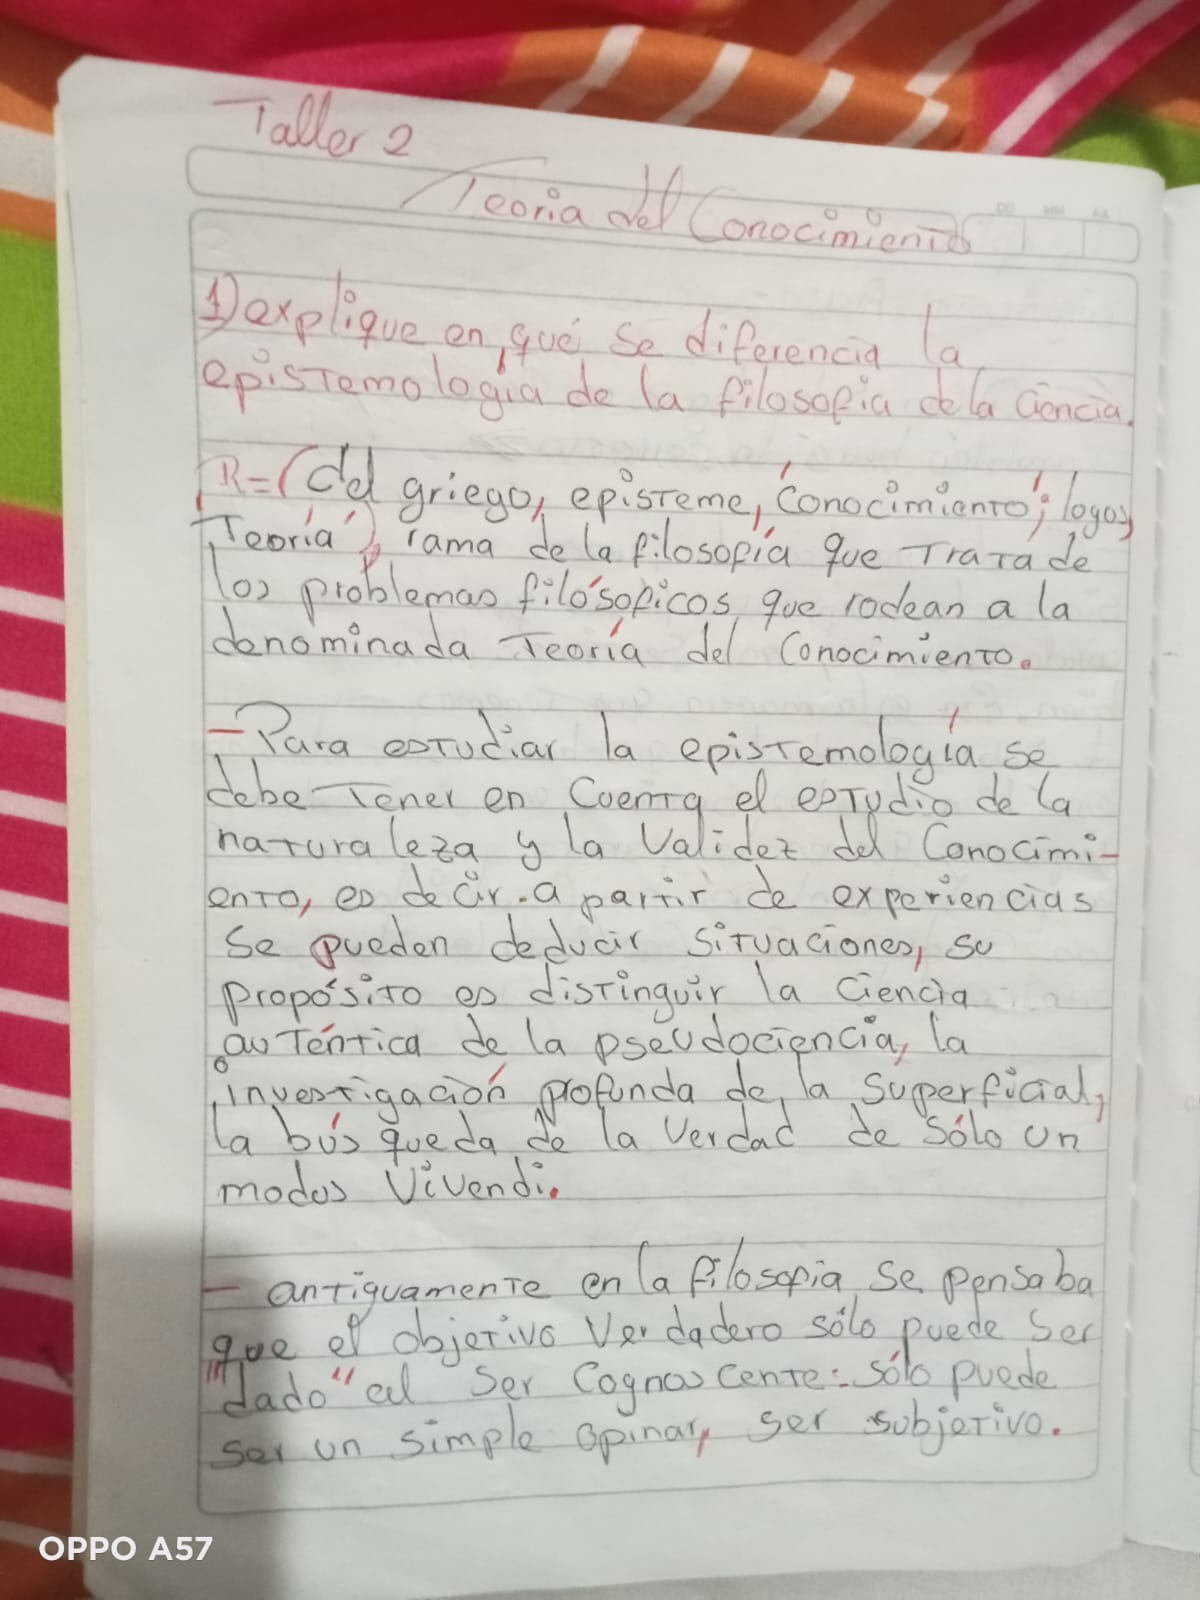 Taller 2
Teoria del Conocimiento
DD MM AA
1) explique en qué se diferencia la
epistemología de la filosofia de la ciencia.
R=(del griego, episteme, 'conocimiento'; logos,
'Teoría'), rama de la filosofía que trata de
los problemas filósoficos que rodean a la
denominada teoría del conocimiento.
- Para estudiar la epistemología se
debe tener en cuenta el estudio de la
naturaleza y la validez del conocimi-
ento, es decir. a partir de experiencias
se pueden deducir situaciones, su
propósito es distinguir la ciencia
auténtica de la pseudociencia, la
investigación profunda de la superficial,
la búsqueda de la verdad de sólo un
modus vivendi.
- antiguamente en la filosofia se pensaba
que el objetivo verdadero sólo puede ser
"dado" al ser cognoscente: sólo puede
ser un simple opinar, ser subjetivo.
OPPO A57